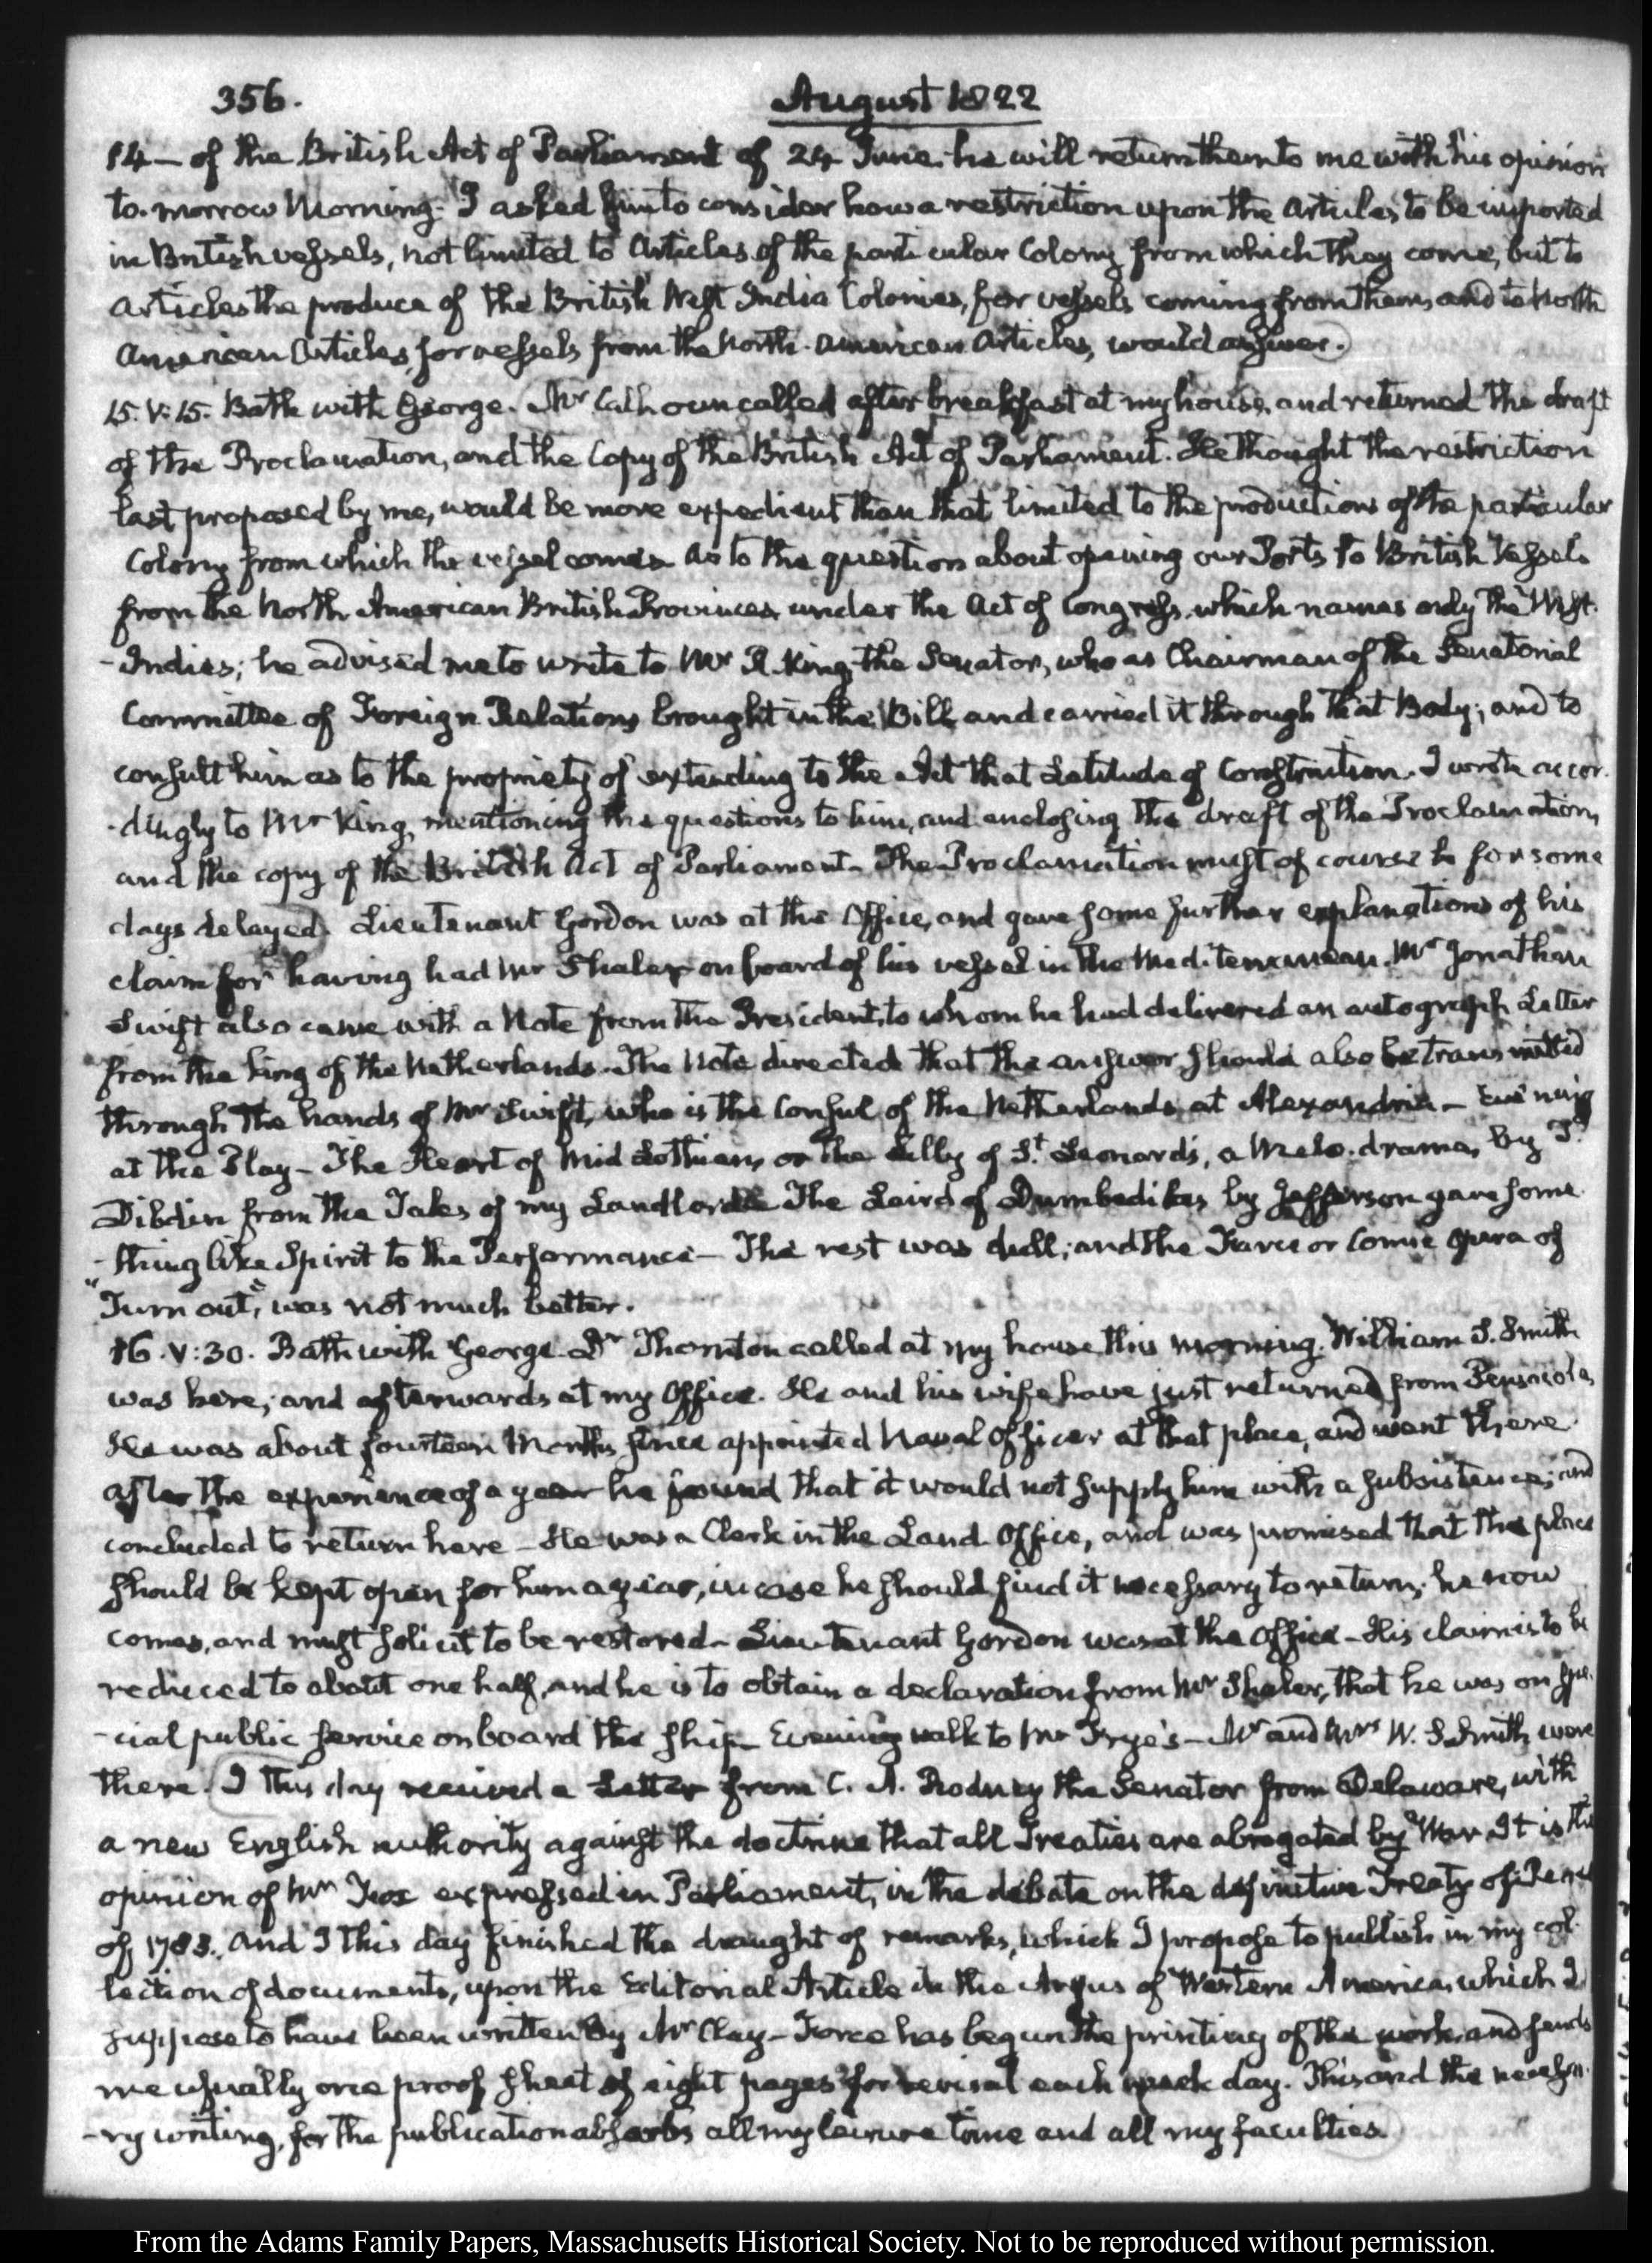 356.
August 1822
14— of the British Act of Parliament of 24 June. he will return them to me with his opinion
to-morrow Morning. I asked him to consider how a restriction upon the Articles to be imported
in British vessels, not limited to Articles of the particular Colony from which they come, but to
Articles the produce of the British West India Colonies, for vessels coming from them, and to North
American Articles, for vessels from the North-American Articles, would answer.
15. V:15. Bath with George. Mr Calhoun called after breakfast at my house, and returned the draft
of the Proclamation, and the Copy of the British Act of Parliament. He thought the restriction
last proposed by me, would be more expedient than that limited to the productions of the particular
Colony from which the vessel comes. As to the question about opening our Ports to British Vessels
from the North American British Provinces, under the Act of Congress, which names only the West-
-Indies; he advised me to write to Mr R. King, the Senator, who as Chairman of the Senatorial
Committee of Foreign Relations brought in the Bill, and carried it through that Body; and to
consult him as to the propriety of extending to the Act that Latitude of Construction. I wrote accor-
-dingly to Mr King, mentioning the questions to him, and enclosing the draft of the Proclamation,
and the copy of the British Act of Parliament. The Proclamation must of course be for some
days delayed. Lieutenant Gordon was at the Office, and gave some further explanations of his
claim for having had Mr Shaler on board of his vessel in the Mediterranean. Mr Jonathan
Swift also came with a Note from the President, to whom he had delivered an autograph Letter
from the king of the Netherlands. The Note directed that the answer should also be transmitted
through the hands of Mr Swift, who is the Consul of the Netherlands at Alexandria— Evening
at the Play— The Heart of Mid Lothian, or the Lilly of St. Leonard's, a Melo-drama, by T.
Dibdin from the Tales of my Landlord. The Laird of Dumbedikes, by Jefferson gave some-
-thing like Spirit to the Performance— The rest was dull; and the Farce or Comic Opera of
"Turn out," was not much better.
16. V:30. Bath with George. Dr Thornton called at my house this morning. William S. Smith
was here; and afterwards at my Office. He and his wife have just returned from Pensacola,
He was about fourteen Months since appointed Naval Officer at that place, and went there
after the experience of a year he found that it would not supply him with a subsistence; and
concluded to return here— He was a Clerk in the Land Office, and was promised that the place
should be kept open for him a year, in case he should find it necessary to return; he now
comes, and must solicit to be restored— Lieutenant Gordon was at the Office— His claim is to be
reduced to about one half, and he is to obtain a declaration from Mr Shaler, that he was on spe-
-cial public service on board the ship— Evening walk to Mr Frye's— Mr and Mrs W. S. Smith were
there. I this day received a Letter from C. A. Rodney the Senator from Delaware, with
a new English authority against the doctrine that all Treaties are abrogated by War. It is the
opinion of Mr Fox expressed in Parliament, in the debate on the definitive Treaty of Peace
of 1783. And I this day finished the draught of remarks, which I propose to publish in my col-
lection of documents, upon the Editorial Article in the Argus of Western America, which I
suppose to have been written by Mr Clay— Force has begun the printing of the work, and sends
me usually one proof sheet of eight pages for revisal each week day. This and the necessa-
-ry writing, for the publication absorbs all my leisure time and all my faculties.
From the Adams Family Papers, Massachusetts Historical Society. Not to be reproduced without permission.